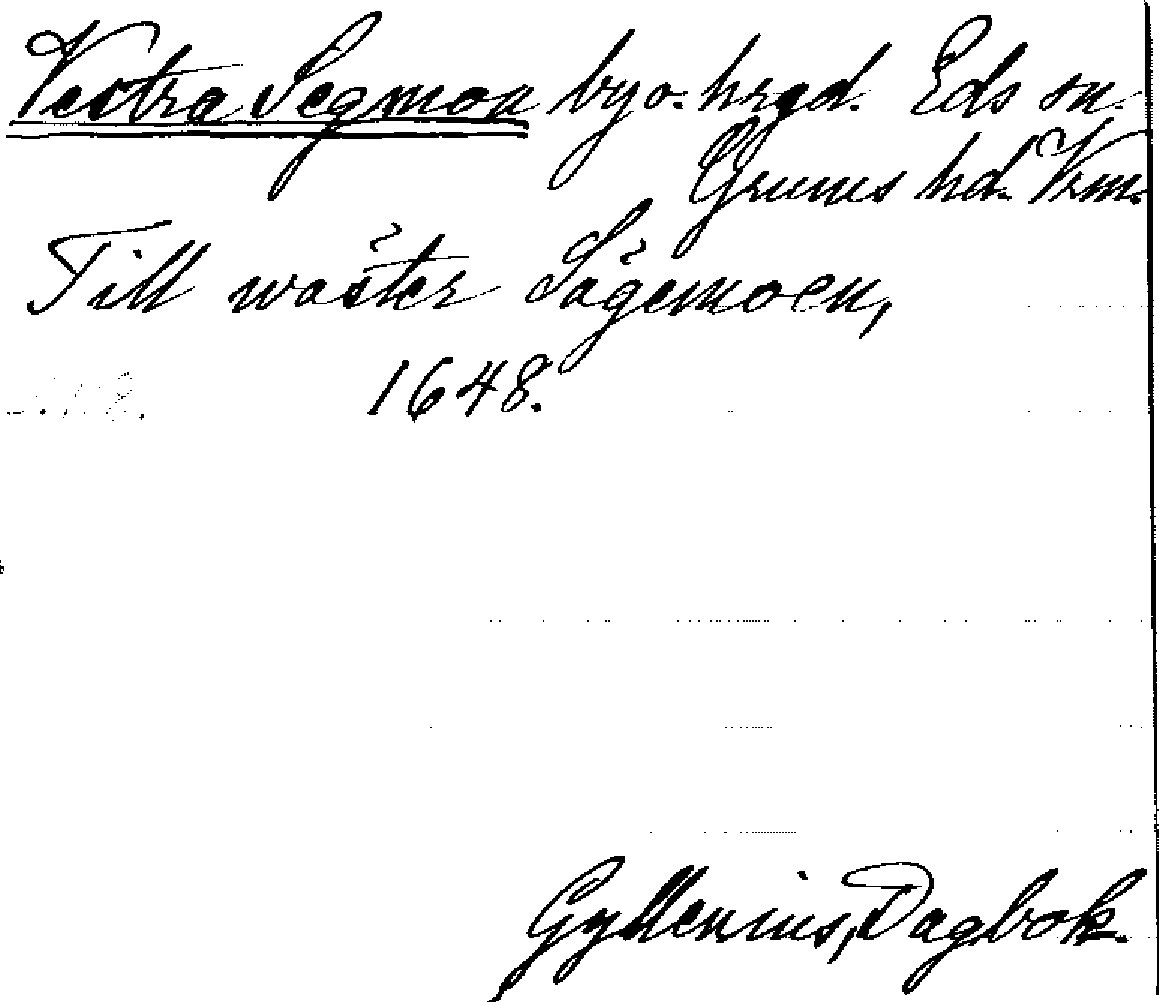 Vestra Segmon by o. hrgd. Eds sn.
Grums hd. Vrm.
Till waster Sagemoen,
1648.
Gyllenius, Dagbok.